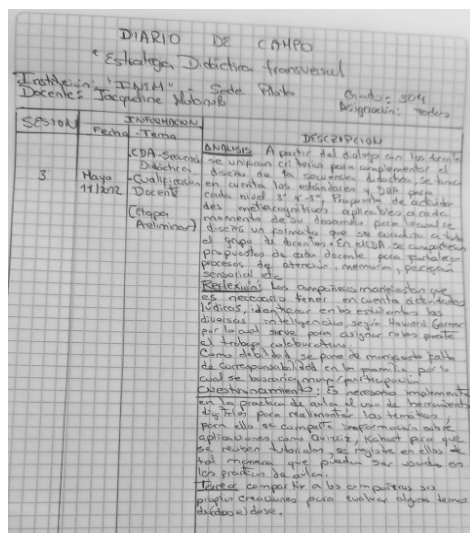 DIARIO DE CAMPO
"Estrategia Didáctica transversal
Institución: "INEM" Sede Piloto
Docente: Jacqueline Grado: 304
Asignación: todas
SESION INFORMACION DESCRIPCION
Fecha - Tema
3 Mayo 11/2022
CDA-Secuencia Didáctica
-Cualificación Docente
(etapa Preliminar)
ANALISIS A partir del dialogo con los demás
se unifican criterios para complementar el
diseño de la secuencia didactica, se tiene
en cuenta los estándares y DBA para
cada nivel 3° 4° 5°, Propuesta de activida-
des metacognitivas aplicables a cada
momento de su desarrollo para lo cual se
diseña un formato que se socializa a todo
el grupo de docentes. En el CDA se comparten
propuestas de cada docente para fortalecer
procesos de atención, memoria, percepción
sensorial etc
Reflexión: Los compañeros manifiestan que
es necesario tener en cuenta actividades
lúdicas, identificar en los estudiantes las
diversas inteligencias según Howard Garner
por lo cual sirve para asignar roles frente
al trabajo colaborativo.
Como debilidad se pone de manifiesto falta
de corresponsabilidad en la familia por lo
cual se buscaría mayor participación
Cuestionamiento: Es necesario implementar
en la practica de aula el uso de herramientas
digitales para realimentar las temáticas
para ello se comparte información sobre
aplicaciones como Quizziz, Kahoot para que
se revisen tutoriales, se registre en ellos de
tal manera que puedan ser usados en
las practicas de aula.
Tarea compartir a los compañeros sus
propias creaciones para evaluar algun tema